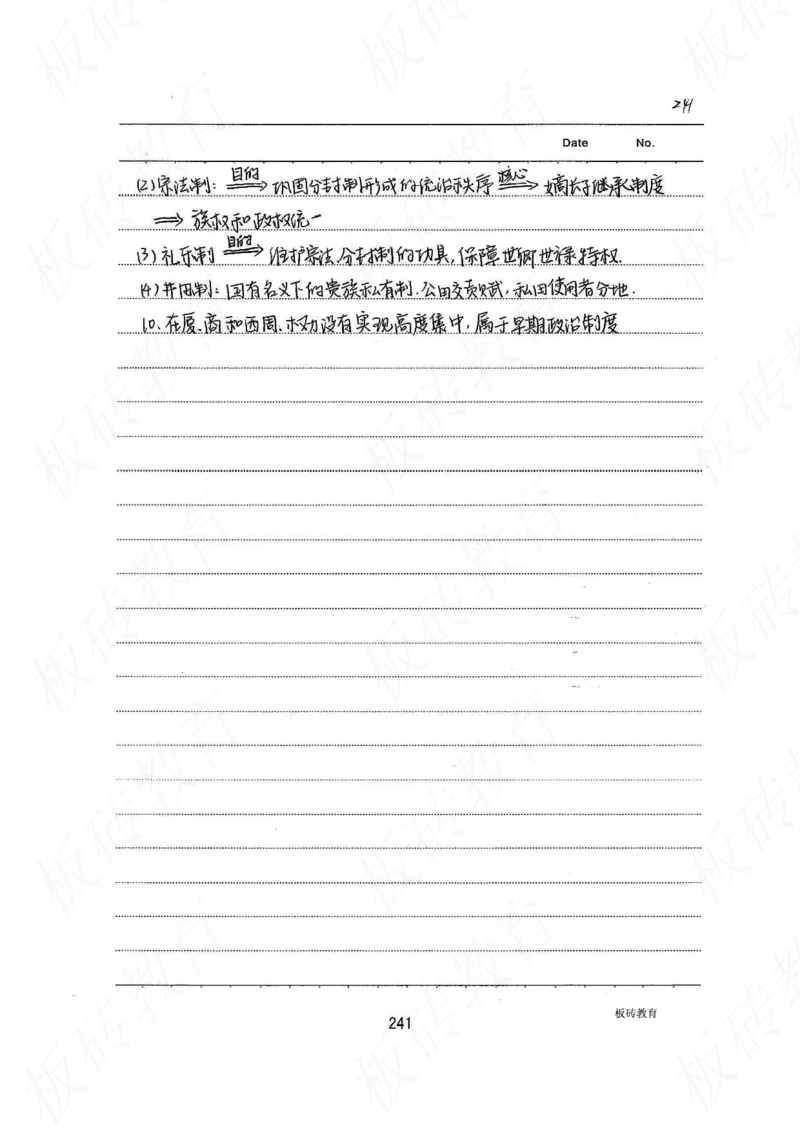 241
Date No.
(2)宗法制: 目的⇒ 巩固分封制形成的统治秩序 核心⇒ 嫡长子继承制度
⇒ 族权和政权统一
(3)礼乐制 目的⇒ 维护宗法、分封制的功具,保障世卿世禄特权.
(4)井田制: 国有名义下的贵族私有制.公田交贡赋,私田使用者分地.
10.在夏、商和西周、权力没有实现高度集中,属于早期政治制度
241
板砖教育